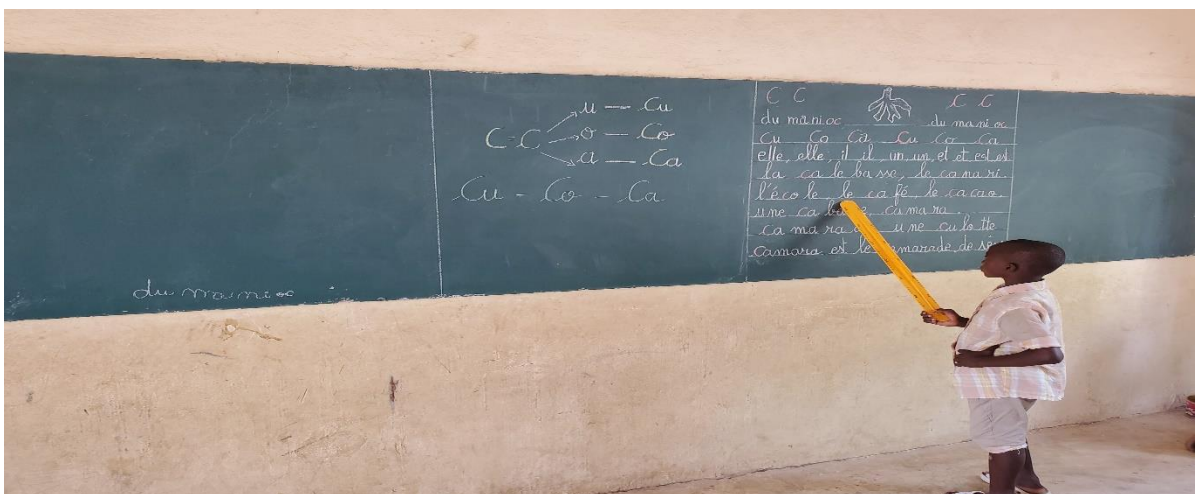 du manioc
u — Cu
C - C o — Co
a — Ca
Cu - Co - Ca
C C C C
du manioc du manioc
Cu Co Ca Cu Co Ca
elle, elle, il il un un, et et est est
la ca le ba sse, le ca na ri
l'éco le le ca fé, le ca cao
une ca ca ma ra.
ca ma ra u ne cu lo tte
camara est le de